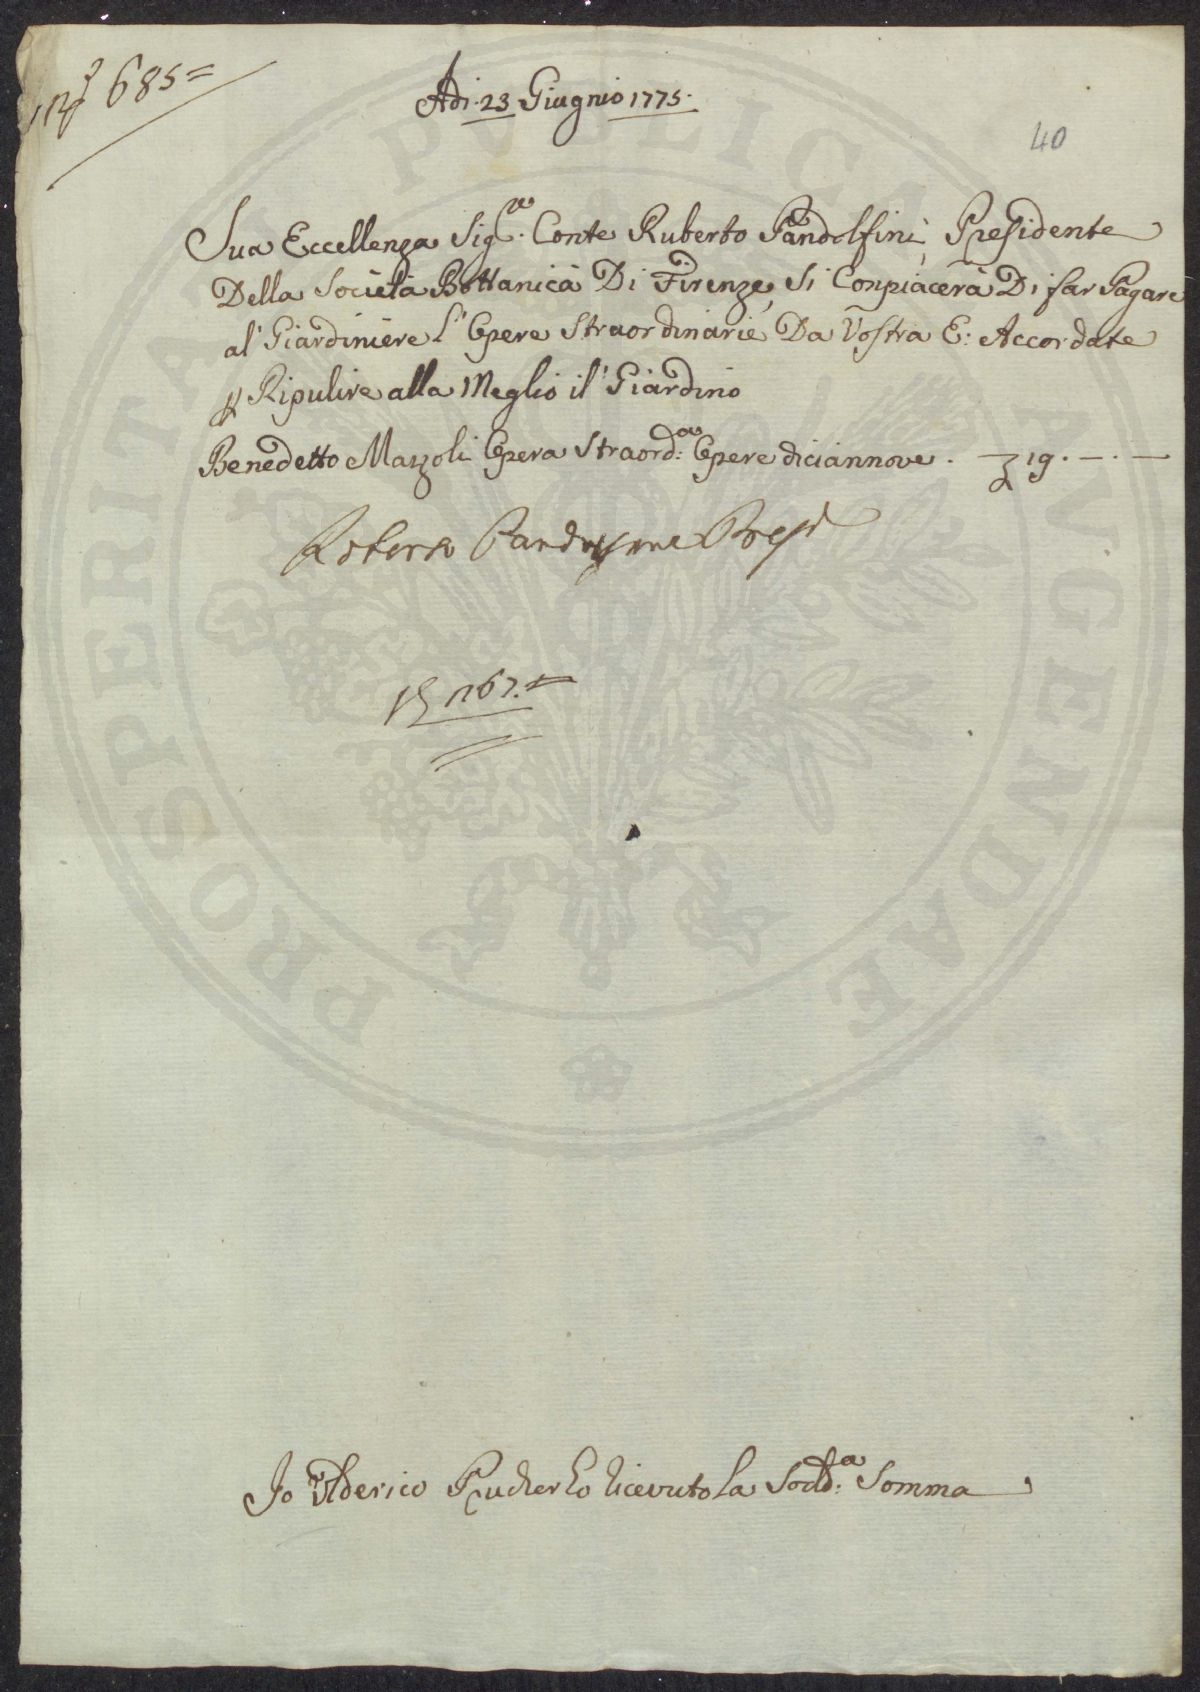 685=
Adi 23 Giugnio 1775.
40
Sua Eccellenza Sig.re Conte Ruberto Pandolfini Presidente
Della Società Bottanica Di Firenze, Si Conpiacerà Di far Pagare
al' Giardiniere L' Opere Straordinarie Da Vostra E: Accordate
p Ripulire alla Meglio il' Giardino
Benedetto Mazzoli Opera Straord:a Opere diciannove. 19. — . —
Roberto Pandolfini Presid
1767.=
Io Ulderico Prucher ho ricevuto la Sodd:a Somma
PROSPERITATI PUBLICAE AUGENDAE